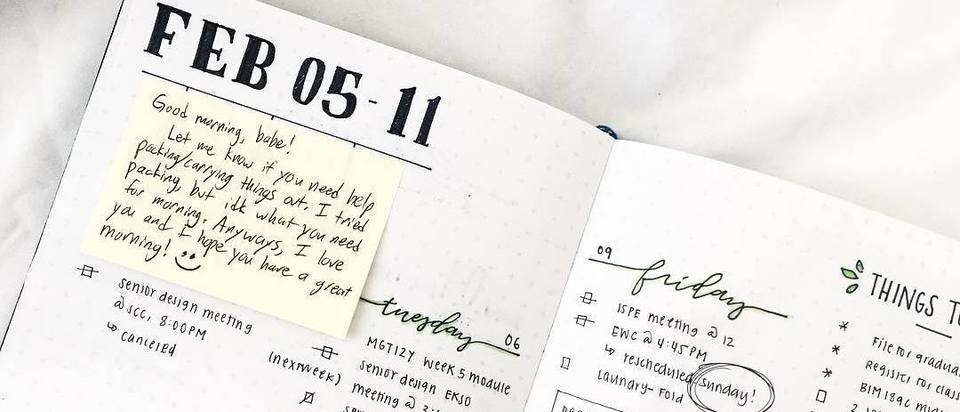 FEB 05-11
Good morning, babe!
Let me know if you need help
packing/carrying things out. I tried
packing, but idk what you need
for morning. Anyways, I love
you and I hope you have a great
morning!
senior design meeting
@SCC, 8:00PM
↳ cancelled
tuesday 06
MGT12Y week 5 module
(next week) senior design EKSO
meeting @
09 friday
ISPE meeting @ 12
EWC @ 4:45PM
↳ rescheduled Sunday!
laundry-fold
THINGS
File for
Register for class
BIM189C